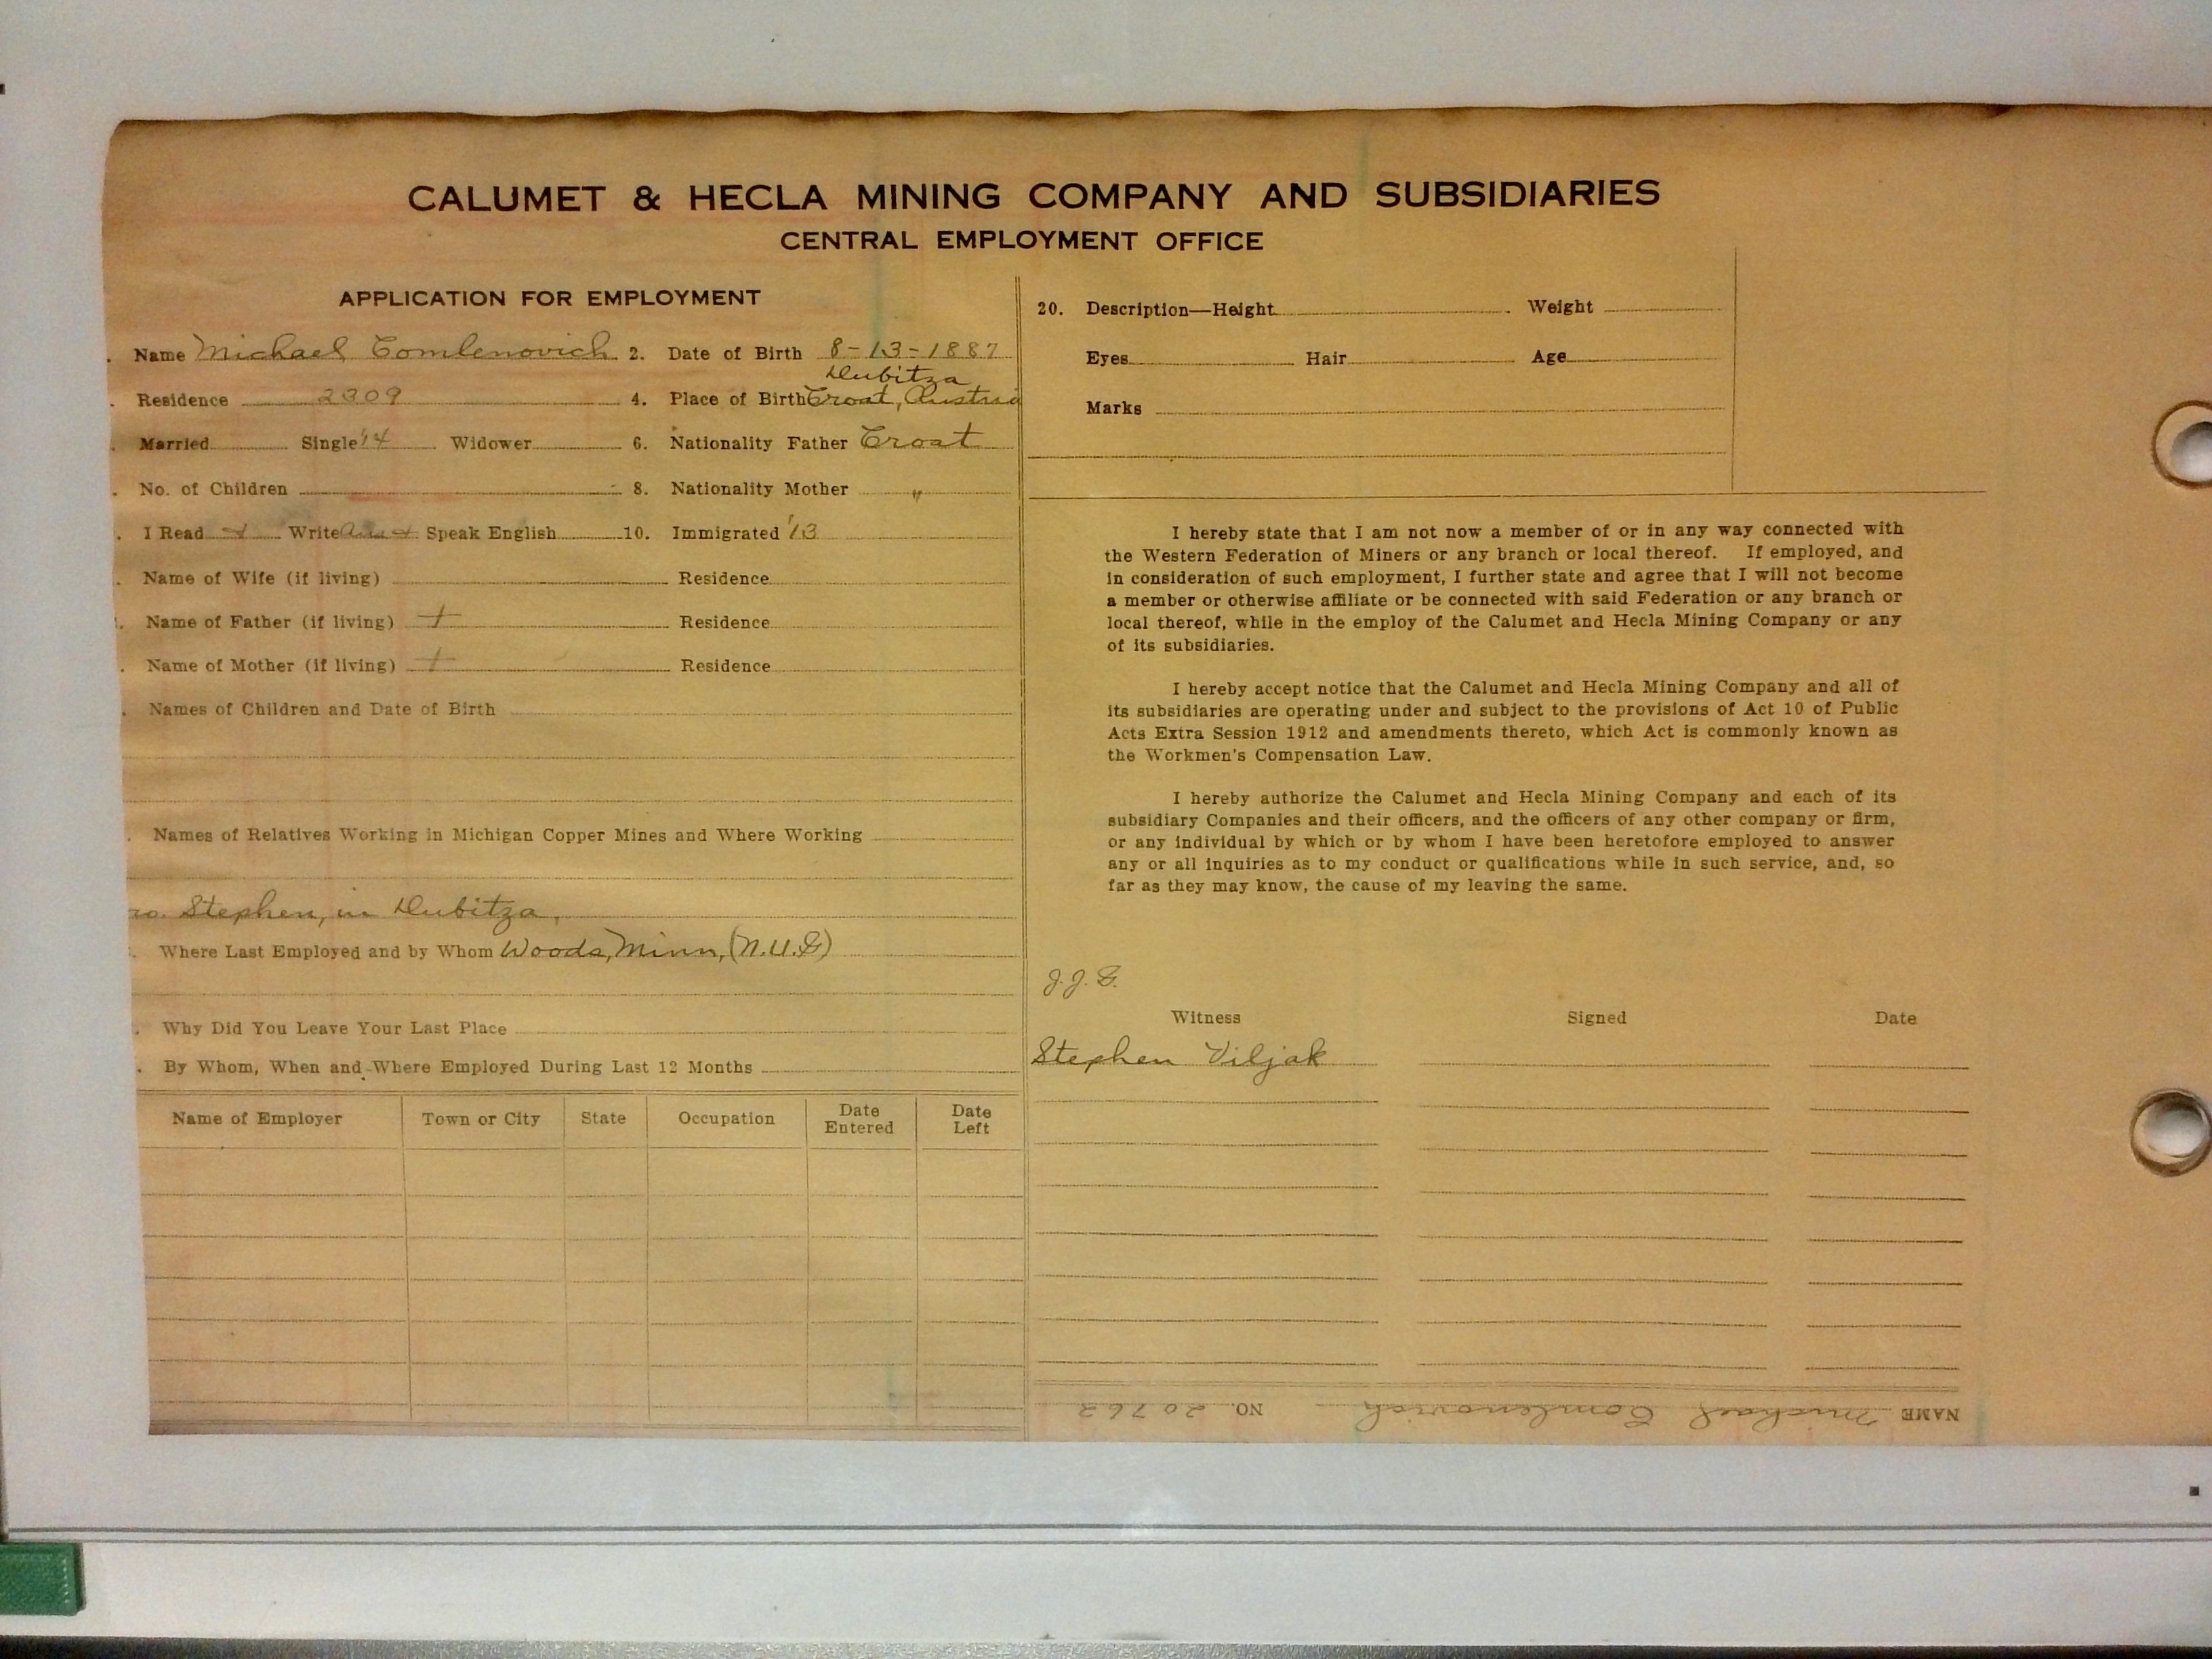 CALUMET & HECLA MINING COMPANY AND SUBSIDIARIES
CENTRAL EMPLOYMENT OFFICE
APPLICATION FOR EMPLOYMENT
. Name Michael Tomlenovich 2. Date of Birth 8-13-1887
Dubitza
. Residence 2309 4. Place of Birth Croat, Austria
. Married Single '14 Widower 6. Nationality Father Croat
. No. of Children - 8. Nationality Mother "
. I Read Write Speak English 10. Immigrated '13
. Name of Wife (if living) Residence
. Name of Father (if living) + Residence
. Name of Mother (if living) + Residence
. Names of Children and Date of Birth
. Names of Relatives Working in Michigan Copper Mines and Where Working
ro. Stephen, in Dubitza,
. Where Last Employed and by Whom Woods, Minn, (N.U.G)
. Why Did You Leave Your Last Place
. By Whom, When and Where Employed During Last 12 Months
Name of Employer Town or City State Occupation Date Entered Date Left
20. Description—Height Weight
Eyes Hair Age
Marks
I hereby state that I am not now a member of or in any way connected with
the Western Federation of Miners or any branch or local thereof. If employed, and
in consideration of such employment, I further state and agree that I will not become
a member or otherwise affiliate or be connected with said Federation or any branch or
local thereof, while in the employ of the Calumet and Hecla Mining Company or any
of its subsidiaries.
I hereby accept notice that the Calumet and Hecla Mining Company and all of
its subsidiaries are operating under and subject to the provisions of Act 10 of Public
Acts Extra Session 1912 and amendments thereto, which Act is commonly known as
the Workmen's Compensation Law.
I hereby authorize the Calumet and Hecla Mining Company and each of its
subsidiary Companies and their officers, and the officers of any other company or firm,
or any individual by which or by whom I have been heretofore employed to answer
any or all inquiries as to my conduct or qualifications while in such service, and, so
far as they may know, the cause of my leaving the same.
J.J.G.
Witness Signed Date
Stephen Viljak
NAME Michael Tomlenovich NO. 20762